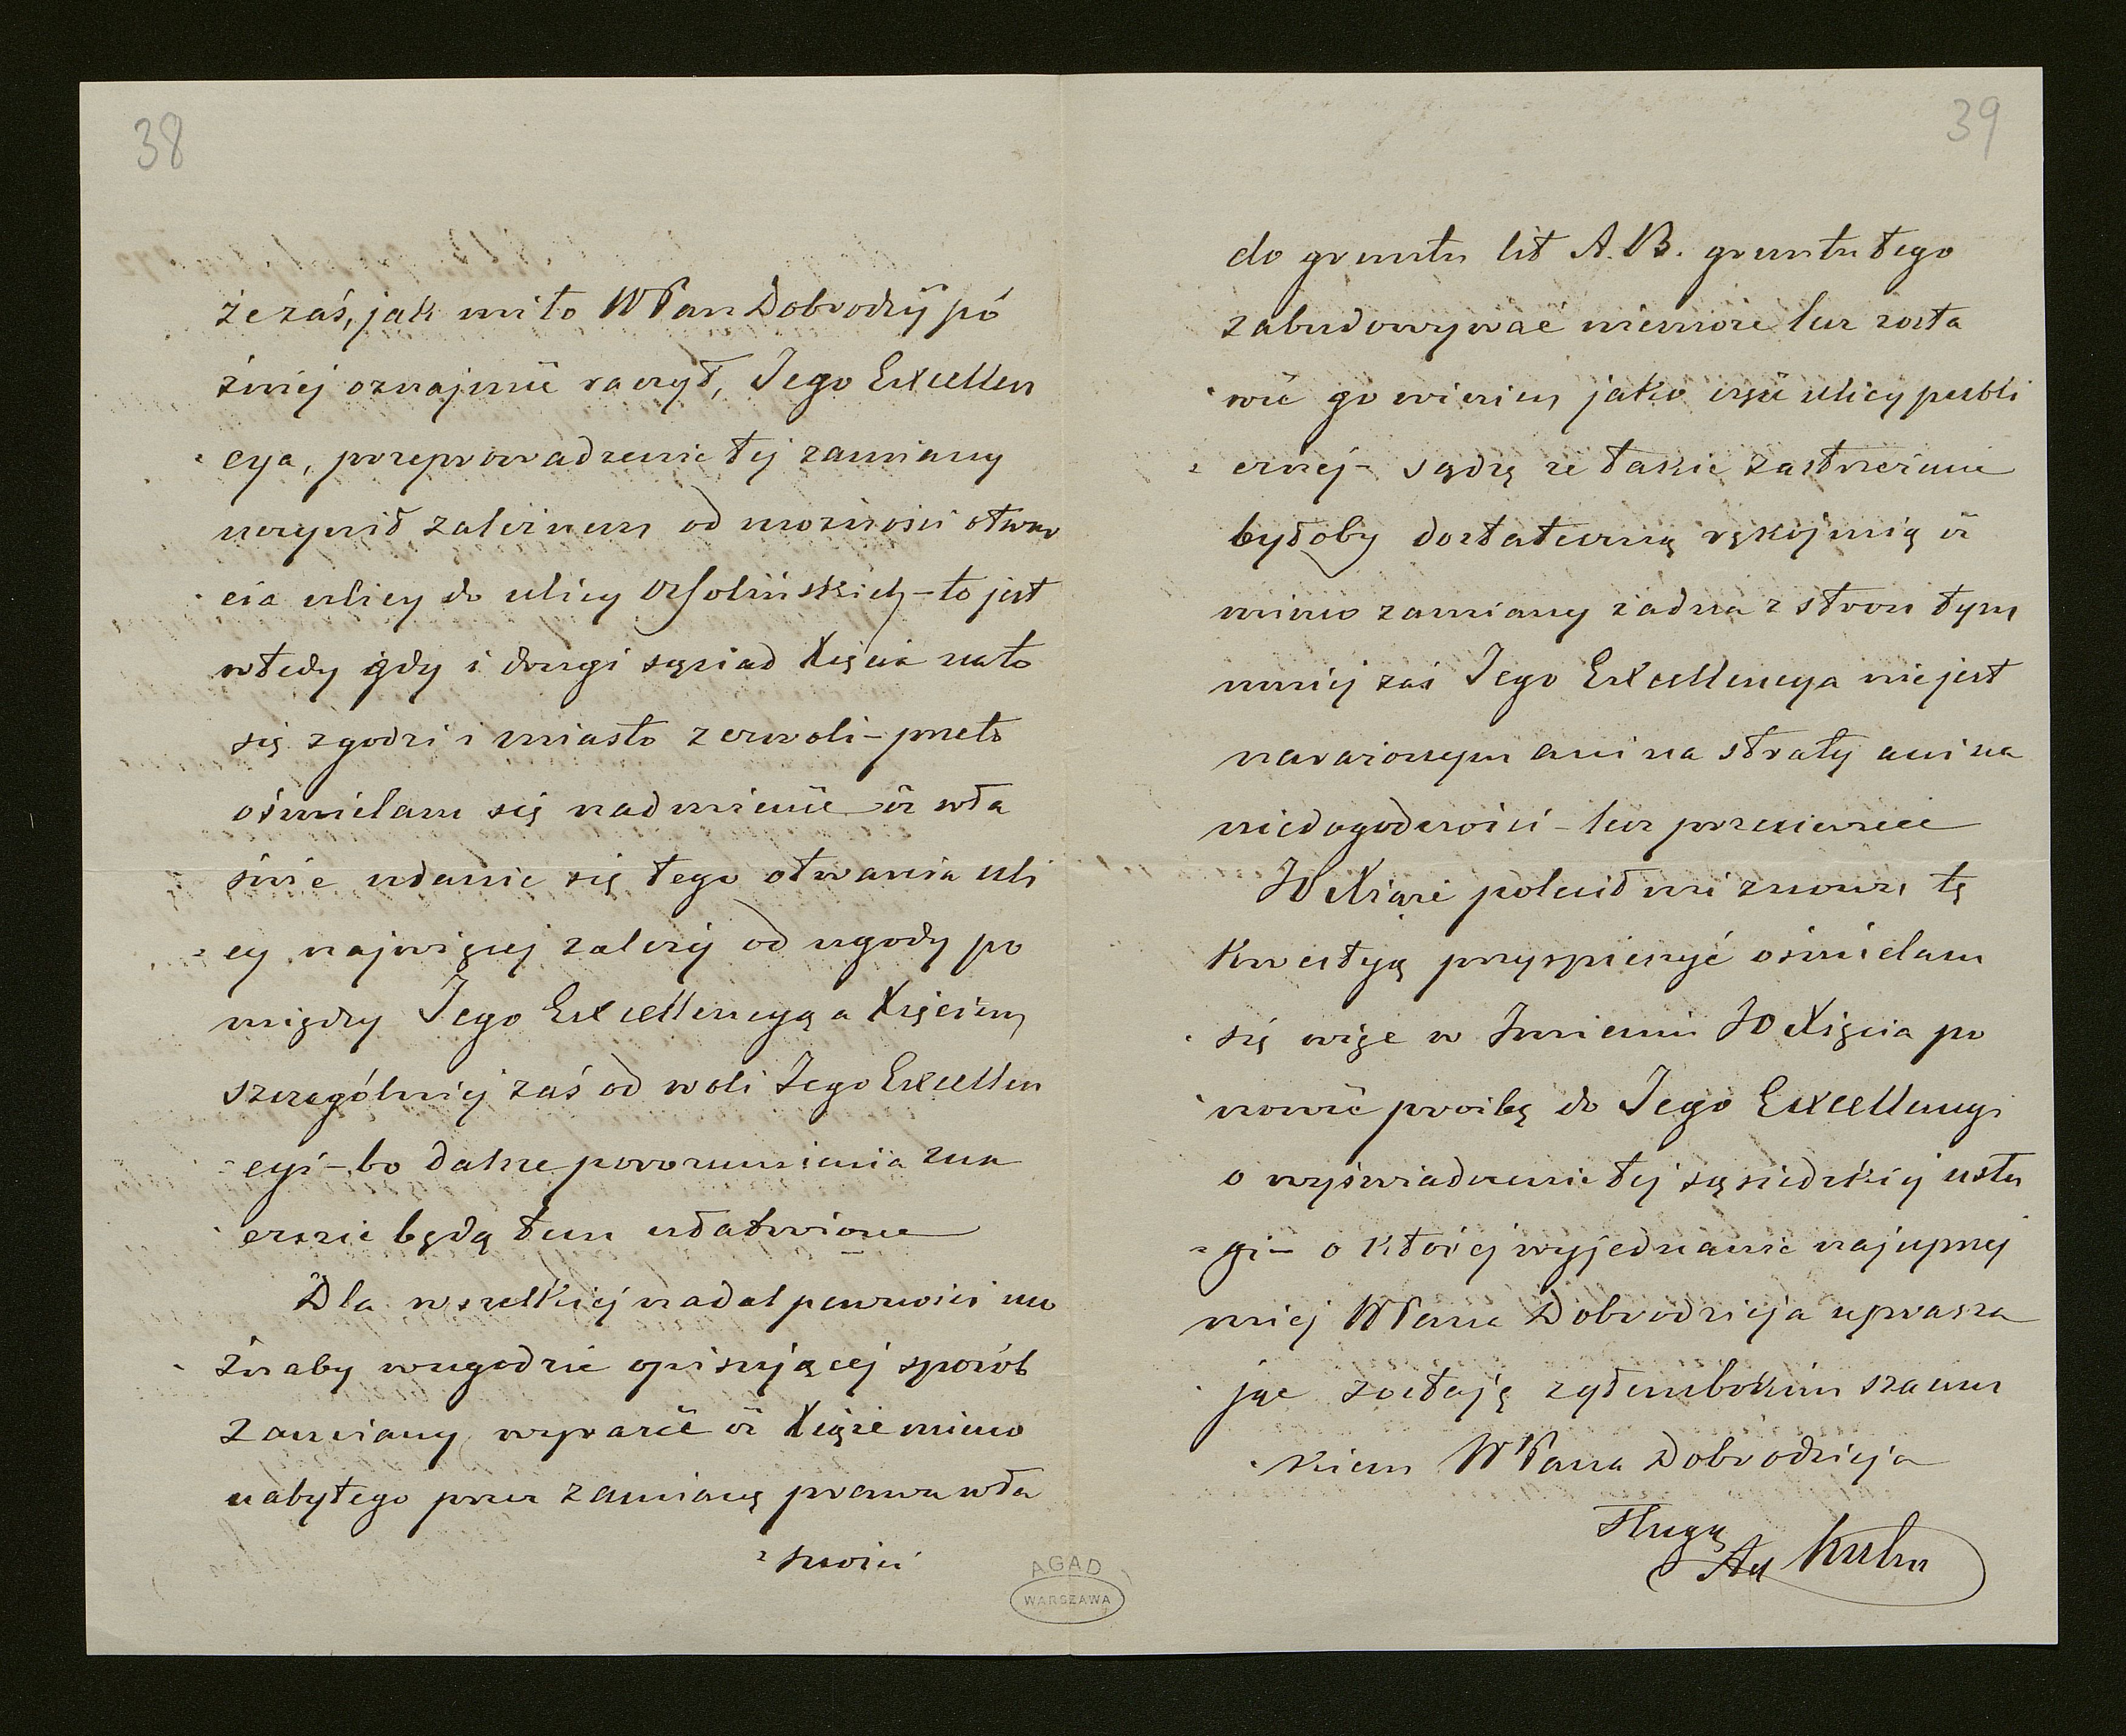 38
że zaś, jak mi to WPan Dobrodzij pó
źniej oznajmić raczył, Jego Excellen
cya, przeprowadzenie tej zamiany
uczynił zależnem od możności otwar
cia ulicy do ulicy Ossolińskich – to jest
wtedy gdy i drugi sąsiad Xięcia na to
się zgodzi i miasto zezwoli – przeto
ośmielam się nadmienić iż wła
śnie udanie się tego otwarcia uli
cy najwięcej zależy od ugody po
między Jego Excellencyą a Xięciem
szczególniej zaś od woli Jego Excellen
cyi – bo dalsze porozumienia zna
cznie będą tem ułatwione
Dla wszelkiej nadal pewności mo
żnaby w ugodzie opisującej sposób
zamiany wyrazić iż Xiąże mimo
nabytego przez zamianę prawa wła
sności
39
do gruntu lit A.B. gruntu tego
zabudowywać niemoże lecz zosta
wić go winien jako część ulicy publi
cznej – sądzę że takie zastrzeżenie
byłoby dostateczną rękojmią iż
mimo zamiany żadna z stron tym
mniej zaś Jego Excellencya nie jest
narażonym ani na straty ani na
niedogodności – lecz przeciwnie
JO Xiąże polecił mi znowu tę
kwestyą przyspieszyć ośmielam
się więc w Imieniu JO Xięcia po
nowić prośbę do Jego Excellencyi
o wyświadczenie tej sąsiedzkiej usłu
gi – o której wyjednanie najuprzej
miej WPana Dobrodzieja uprasza
jąc zostaję z głembokim szacun
kiem WPana Dobrodzieja
Sługą
AGAD
WARSZAWA